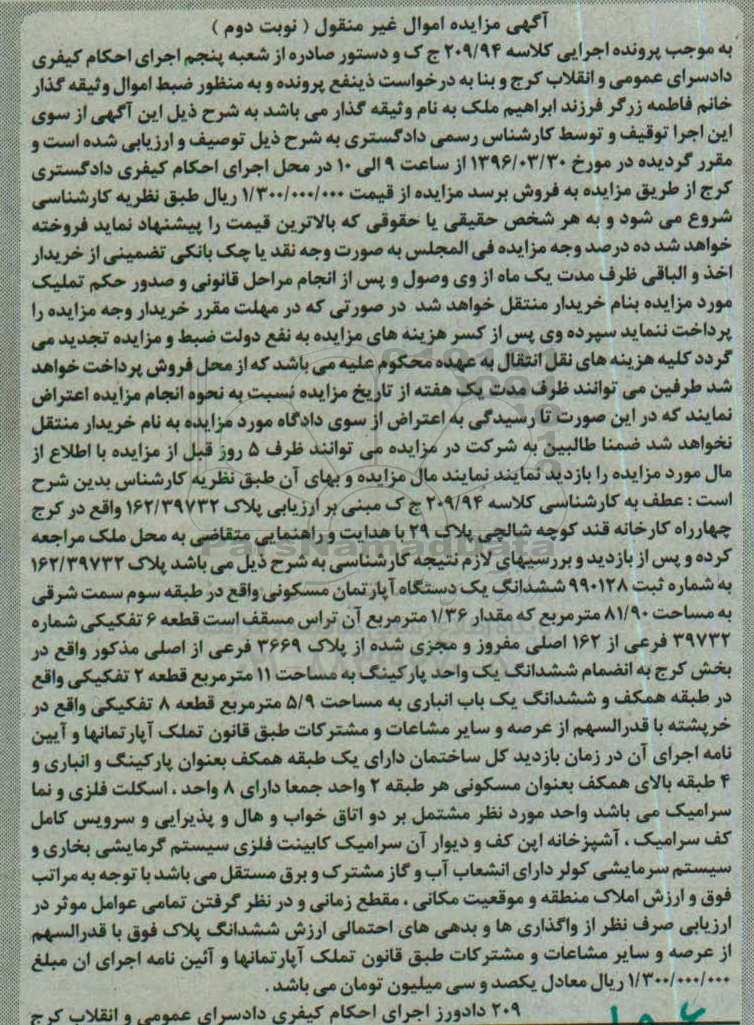 آگهی مزایده اموال غیر منقول ( نوبت دوم )
به موجب پرونده اجرایی کلاسه ۲۰۹/۹۴ ج ک و دستور صادره از شعبه پنجم اجرای احکام کیفری
دادسرای عمومی و انقلاب کرج و بنا به درخواست ذینفع پرونده و به منظور ضبط اموال وثیقه گذار
خانم فاطمه زرگر فرزند ابراهیم ملک به نام وثیقه گذار می باشد به شرح ذیل این آگهی از سوی
این اجرا توقیف و توسط کارشناس رسمی دادگستری به شرح ذیل توصیف و ارزیابی شده است و
مقرر گردیده در مورخ ۱۳۹۶/۰۳/۳۰ از ساعت ۹ الی ۱۰ در محل اجرای احکام کیفری دادگستری
کرج از طریق مزایده به فروش برسد مزایده از قیمت ۱/۳۰۰/۰۰۰/۰۰۰ ریال طبق نظریه کارشناسی
شروع می شود و به هر شخص حقیقی یا حقوقی که بالاترین قیمت را پیشنهاد نماید فروخته
خواهد شد ده درصد وجه مزایده فی المجلس به صورت وجه نقد یا چک بانکی تضمینی از خریدار
اخذ و الباقی ظرف مدت یک ماه از وی وصول و پس از انجام مراحل قانونی و صدور حکم تملیک
مورد مزایده بنام خریدار منتقل خواهد شد در صورتی که در مهلت مقرر خریدار وجه مزایده را
پرداخت ننماید سپرده وی پس از کسر هزینه های مزایده به نفع دولت ضبط و مزایده تجدید می
گردد کلیه هزینه های نقل انتقال به عهده محکوم علیه می باشد که از محل فروش پرداخت خواهد
شد طرفین می توانند ظرف مدت یک هفته از تاریخ مزایده نسبت به نحوه انجام مزایده اعتراض
نمایند که در این صورت تا رسیدگی به اعتراض از سوی دادگاه مورد مزایده به نام خریدار منتقل
نخواهد شد ضمنا طالبین به شرکت در مزایده می توانند ظرف ۵ روز قبل از مزایده با اطلاع از
مال مورد مزایده را بازدید نمایند نمایند مال مزایده و بهای آن طبق نظریه کارشناس بدین شرح
است : عطف به کارشناسی کلاسه ۲۰۹/۹۴ ج ک مبنی بر ارزیابی پلاک ۱۶۲/۳۹۷۳۲ واقع در کرج
چهارراه کارخانه قند کوچه شالچی پلاک ۲۹ با هدایت و راهنمایی متقاضی به محل ملک مراجعه
کرده و پس از بازدید و بررسیهای لازم نتیجه کارشناسی به شرح ذیل می باشد پلاک ۱۶۲/۳۹۷۳۲
به شماره ثبت ۹۹۰۱۲۸ ششدانگ یک دستگاه آپارتمان مسکونی واقع در طبقه سوم سمت شرقی
به مساحت ۸۱/۹۰ مترمربع که مقدار ۱/۳۶ مترمربع آن تراس مسقف است قطعه ۶ تفکیکی شماره
۳۹۷۳۲ فرعی از ۱۶۲ اصلی مفروز و مجزی شده از پلاک ۳۶۶۹ فرعی از اصلی مذکور واقع در
بخش کرج به انضمام ششدانگ یک واحد پارکینگ به مساحت ۱۱ مترمربع قطعه ۲ تفکیکی واقع
در طبقه همکف و ششدانگ یک باب انباری به مساحت ۵/۹ مترمربع قطعه ۸ تفکیکی واقع در
خرپشته با قدرالسهم از عرصه و سایر مشاعات و مشترکات طبق قانون تملک آپارتمانها و آیین
نامه اجرای آن در زمان بازدید کل ساختمان دارای یک طبقه همکف بعنوان پارکینگ و انباری و
۴ طبقه بالای همکف بعنوان مسکونی هر طبقه ۲ واحد جمعا دارای ۸ واحد ، اسکلت فلزی و نما
سرامیک می باشد واحد مورد نظر مشتمل بر دو اتاق خواب و هال و پذیرایی و سرویس کامل
کف سرامیک ، آشپزخانه اپن کف و دیوار آن سرامیک کابینت فلزی سیستم گرمایشی بخاری و
سیستم سرمایشی کولر دارای انشعاب آب و گاز مشترک و برق مستقل می باشد با توجه به مراتب
فوق و ارزش املاک منطقه و موقعیت مکانی ، مقطع زمانی و در نظر گرفتن تمامی عوامل موثر در
ارزیابی صرف نظر از واگذاری ها و بدهی های احتمالی ارزش ششدانگ پلاک فوق با قدرالسهم
از عرصه و سایر مشاعات و مشترکات طبق قانون تملک آپارتمانها و آئین نامه اجرای ان مبلغ
۱/۳۰۰/۰۰۰/۰۰۰ ریال معادل یکصد و سی میلیون تومان می باشد .
۲۰۹ دادورز اجرای احکام کیفری دادسرای عمومی و انقلاب کرج
ParsNamadData